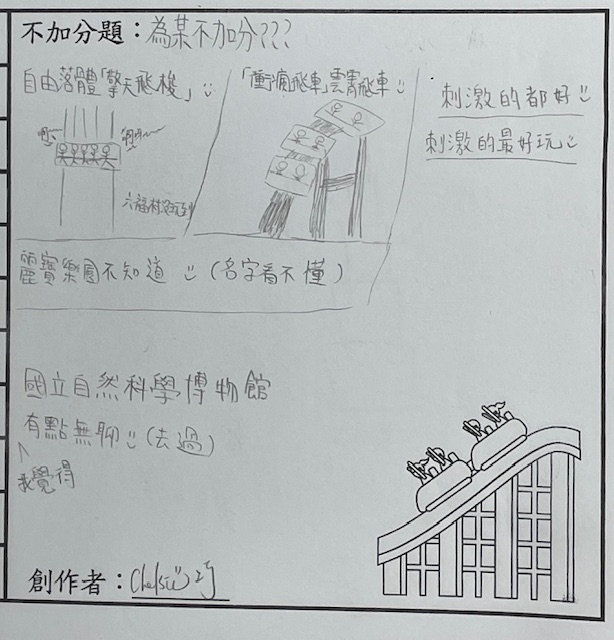 不加分題：為某不加分???
自由落體「擎天飛梭」
「衝瘋飛車」雲霄飛車
刺激的都好
刺激的最好玩
六福村
麗寶樂園不知道 (名字看不懂)
國立自然科學博物館
有點無聊 (去過)
我覺得
創作者：